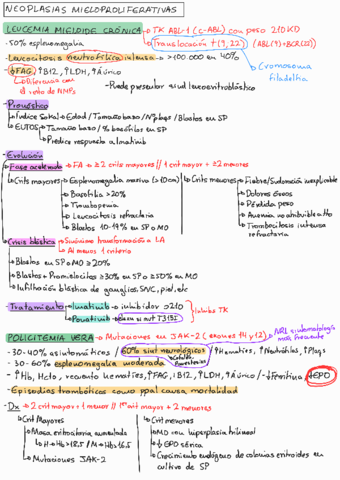 NEOPLASIAS MIELOPROLIFERATIVAS
LEUCEMIA MIELOIDE CRÓNICA → TK ABL-1 (c-ABL) con peso 210KD
-50% esplenomegalia
Translocación t(9,22) (ABL(9)+BCR(22))
-Leucocitosis neutrofílica intensa → >100 000 en 40%
Cromosoma filadelfia
-↓FAG, ↑B12, ↑LDH, ↑Á.úrico
→ Diferencia con el resto de NMPs
-Puede presentar síndr leucoeritroblástico
-Pronóstico
→ Índice Sokal → Edad / Tamaño bazo / Nº plaqs / Blastos en SP
→ EUTOS → Tamaño bazo / % basófilos en SP
→ Predice respuesta a Imatinib
-Evolución
→ Fase acelerada → FA → ≥2 crits mayores // 1 crit mayor + ≥2 menores
→ Crits mayores → Esplenomegalia masiva (>10cm)
→ Basofilia >20%
→ Trombopenia
→ Leucocitosis refractaria
→ Blastos 10-19% en SP o MO
→ Crits menores → Fiebre/Sudoración inexplicable
→ Dolores óseos
→ Pérdida peso
→ Anemia no atribuible a tto
→ Trombocitosis intensa refractaria
→ Crisis blástica → Sinónimo transformación a LA
→ Al menos 1 criterio
→ Blastos en SP o MO ≥20%
→ Blastos + Promielocitos ≥30% en SP o ≥50% en MO
→ Infiltración blástica de ganglios, SNC, piel, etc
-Tratamiento → Imatinib → inhibidor p210
→ Ponatinib → Elección si mut T315I
Inhibs TK
POLICITEMIA VERA → Mutaciones en JAK-2 (exones 14 y 12)
NRL sintomatología más frecuente
-30-40% asintomáticos / 60% sínt neurológicos / ↑Hematíes, ↑Neutrófilos, ↑Plaqs
→ Cefalea
→ Parestesias
-30-60% esplenomegalia moderada
-↑Hb, Hcto, recuento hematíes, ↑FAG, ↑B12, ↑LDH, ↑Á.úrico / -↓Ferritina, ↓EPO
-Episodios trombóticos como ppal causa mortalidad
-Dx → 2 crit mayor + 1 menor // 1er crit mayor + 2 menores
→ Crit Mayores
→ Masa eritrocitaria aumentada
→ H → Hb >18.5 / M → Hb >16.5
→ Mutaciones JAK-2
→ Crit menores
→ MO con hiperplasia trilineal
→ ↓EPO sérica
→ Crecimiento endógeno de colonias eritroides en cultivo de SP